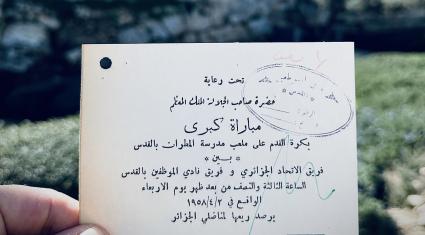 تحت رعاية
حضرة صاحب الجلالة الملك المعظم
مباراة كبرى
بكرة القدم على ملعب مدرسة المطران بالقدس
« بين »
فريق الاتحاد الجزائري و فريق نادي الموظفين بالقدس
الساعة الثالثة والنصف من بعد ظهر يوم الاربعاء
الواقع في ١٩٥٨/٤/٢
يرصد ريعها لمناضلي الجزائر